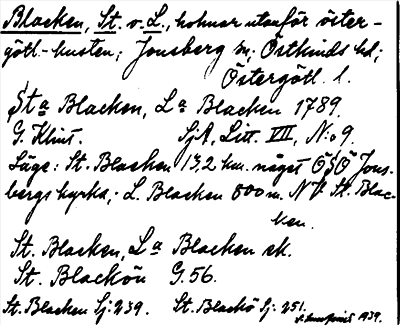 Blacken, St. o. L., holmar utanför öster-
götl.-kusten; Jonsberg sn. Östkinds hd;
Östergötl. l.
Sta Blacken, La Blacken 1789.
G. Klint. SjA, Litt. VII, N:o 9.
Läge: St. Blacken 13,2 km. något ÖSÖ Jons-
bergs kyrka; L. Blacken 800 m. NV. St. Blac-
ken.
St. Blacken, La Blacken ek.
St. Blackön G. 56.
St. Blacken Sj: 239. St. Blackö Sj: 251.
1939.